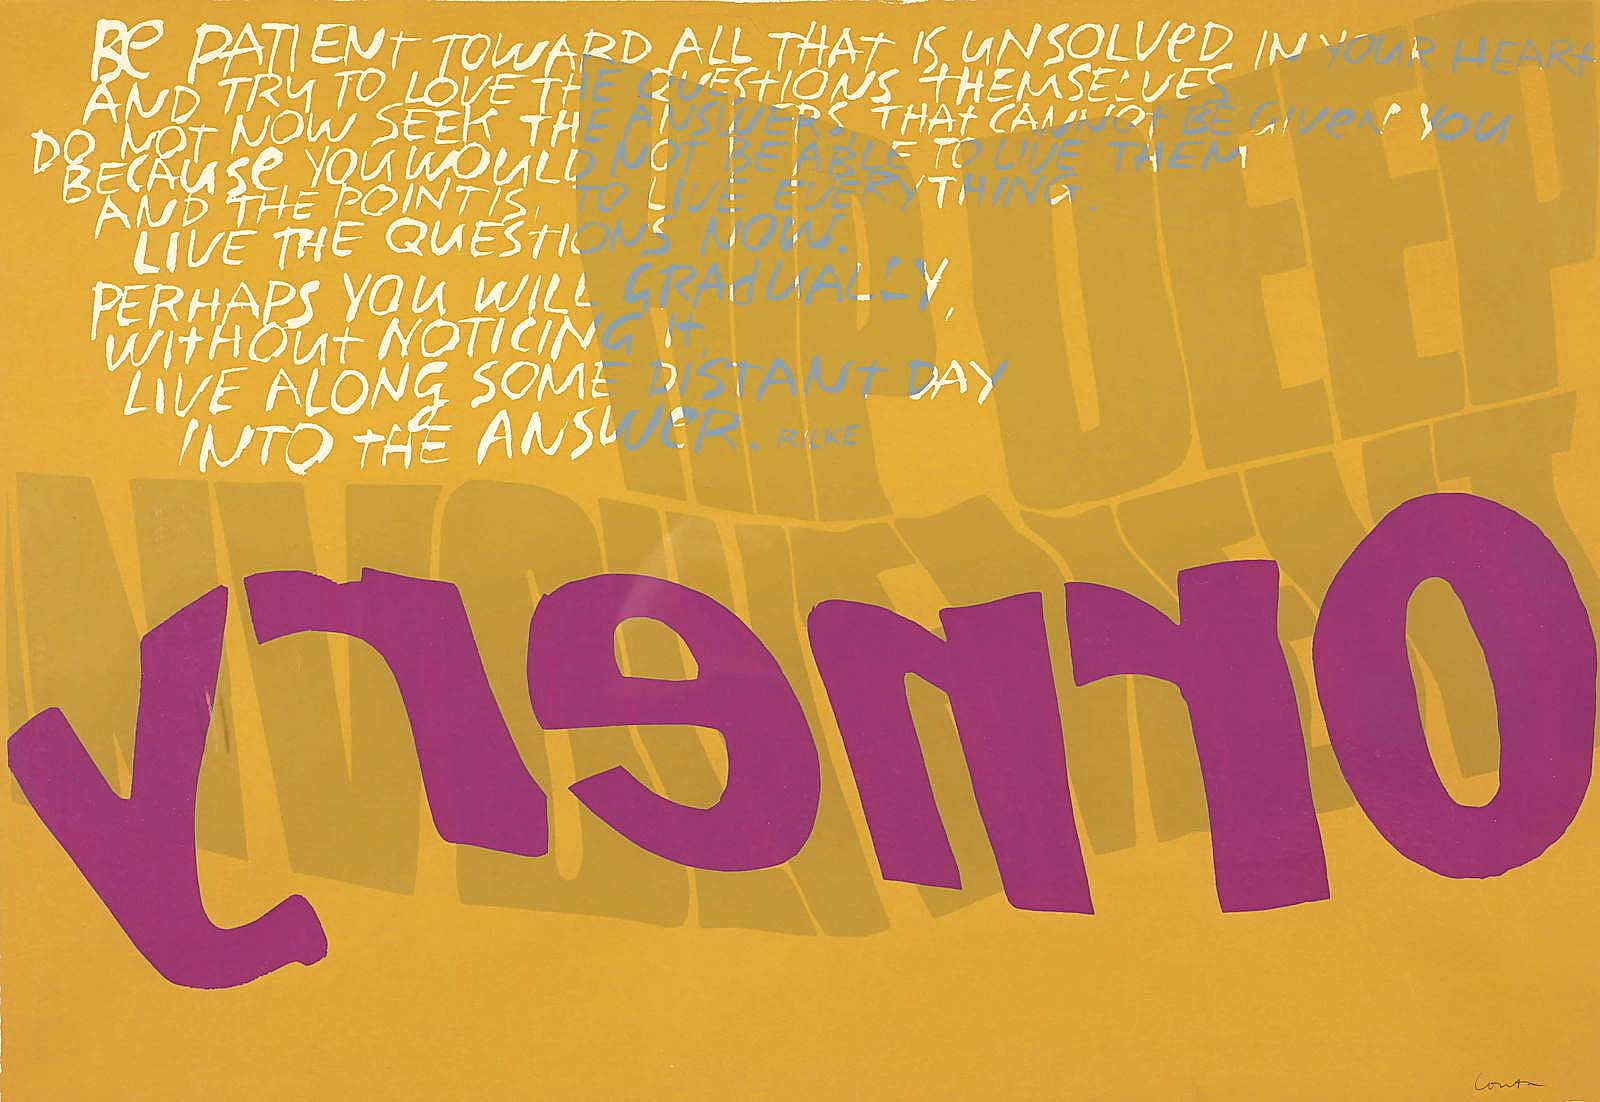 BE PATIENT TOWARD ALL THAT IS UNSOLVED IN YOUR HEART
AND TRY TO LOVE THE QUESTIONS THEMSELVES
DO NOT NOW SEEK THE ANSWERS THAT CANNOT BE GIVEN YOU
BECAUSE YOU WOULD NOT BE ABLE TO LIVE THEM
AND THE POINT IS, TO LIVE EVERYTHING.
LIVE THE QUESTIONS NOW.
PERHAPS YOU WILL GRADUALLY,
WITHOUT NOTICING IT,
LIVE ALONG SOME DISTANT DAY
INTO THE ANSWER. RILKE
DEEP
ornery